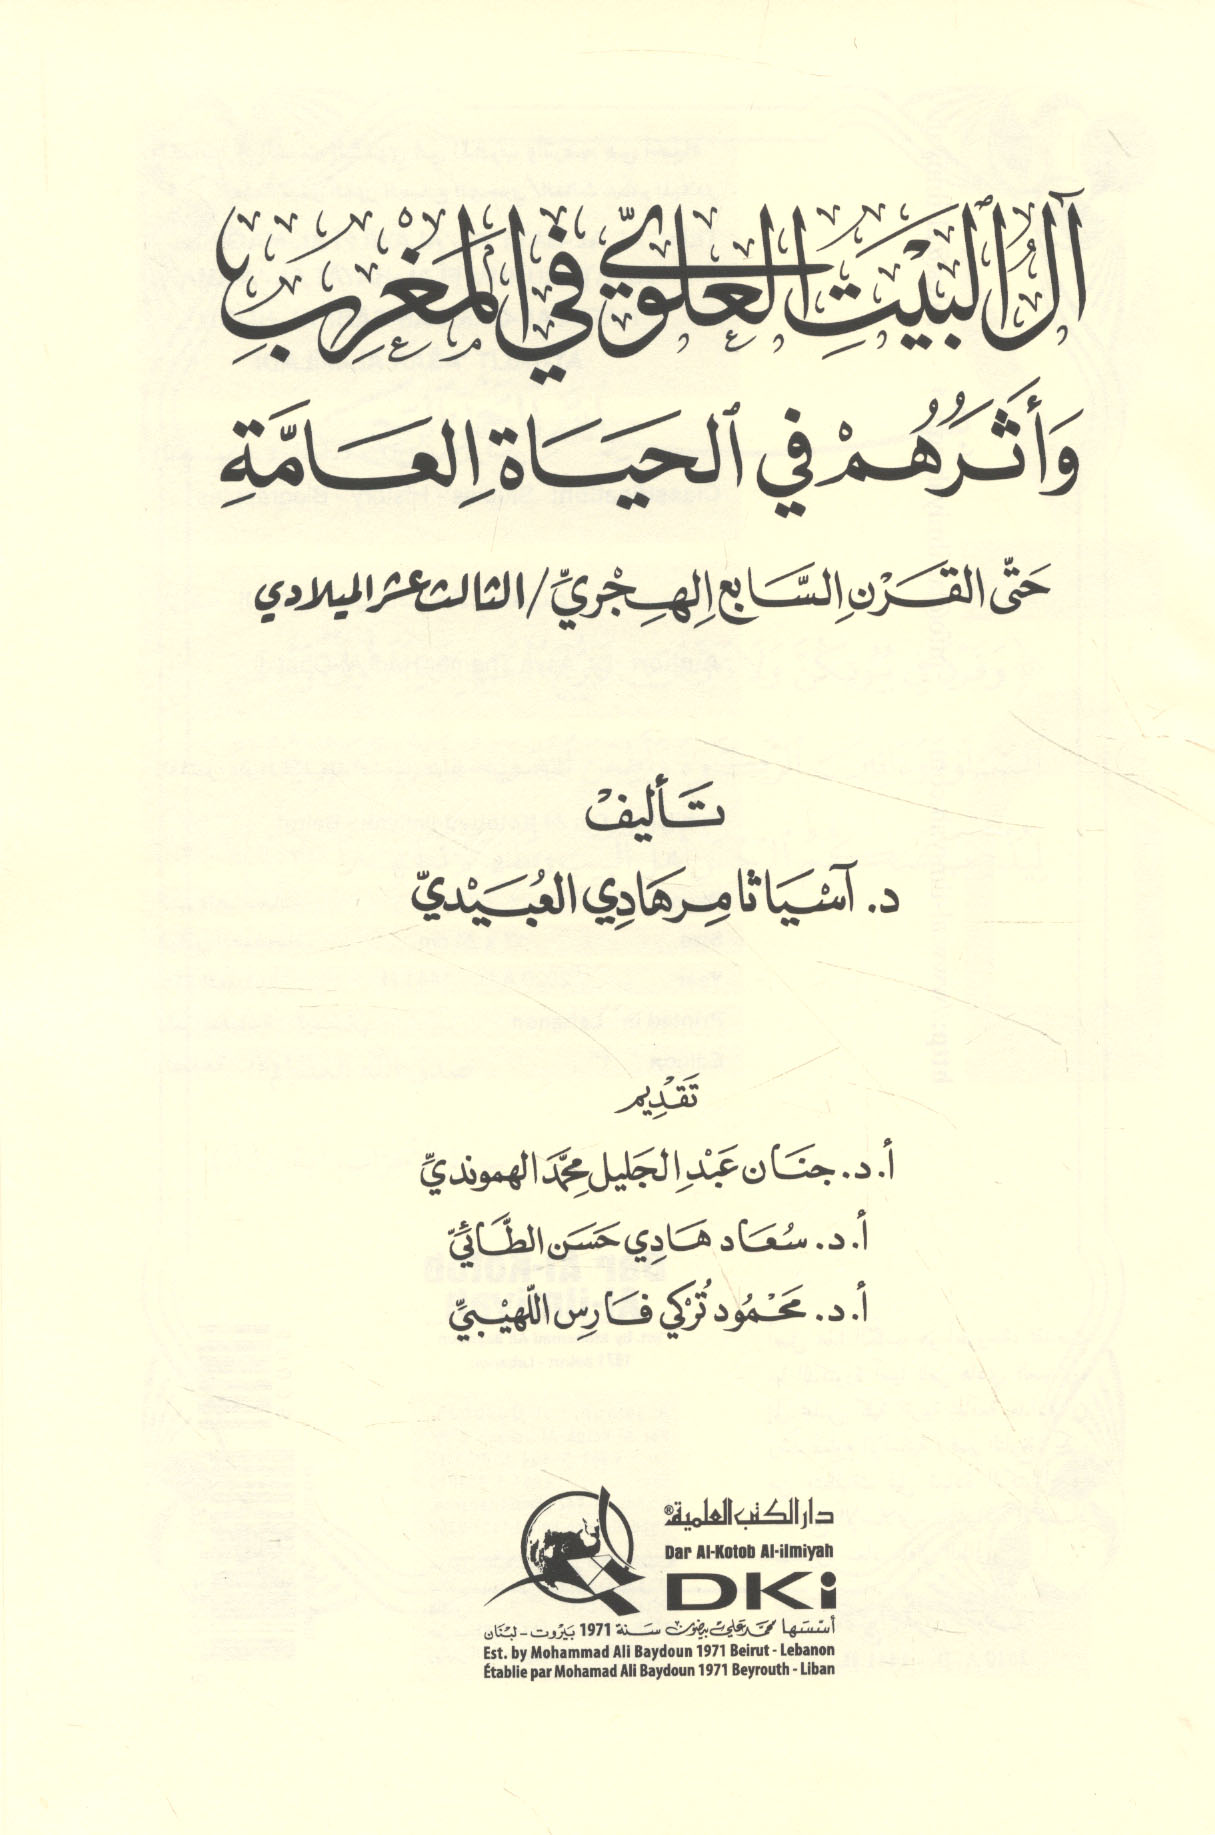 آلُ البَيْتِ العلويّ في المَغْرِب
وَأَثَرُهُمْ في الحَيَاةِ العَامَّةِ
حَتّى القَرْنِ السَّابِع الهِجْرِيِّ / الثالث عشر الميلادي
تَأليفْ
د. آسْيَا ثامِر هَادِي العُبَيْدِيّ
تَقْدِيم
أ.د. جنَان عَبْدِ الجَليل محَمَّد الهمونديِّ
أ.د. سُعَاد هَادِي حَسَن الطَّائيِّ
أ.د. مَحْمُود تُرْكي فَارِس اللّهيْبيِّ
دار الكتب العلمية®
Dar Al-Kotob Al-ilmiyah
DKi
أسّسَها محمّد علي بيضون سَنة 1971 بَيْروت - لبْنَان
Est. by Mohammad Ali Baydoun 1971 Beirut - Lebanon
Établie par Mohamad Ali Baydoun 1971 Beyrouth - Liban